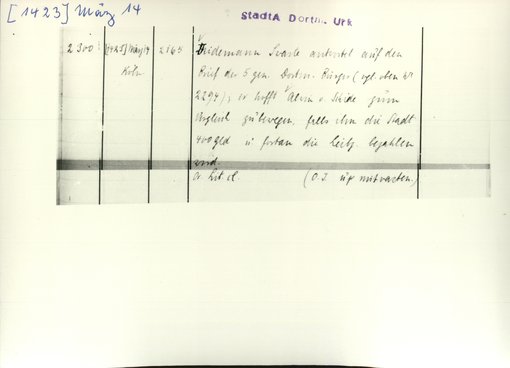 [1423] März 14
StadtA Dortm. Urk
2300 [1423] März 14 2164 Tidemann Swarte antwortet auf den
Köln. Brief der 5 gen. Dortm. Bürger (vgl. oben nr
2294); er hofft Alvin v. zum
Vergleich zu bewegen, falls ihm die Stadt
400 gld u. fortan die bezahlen
wird.
Or. lit. cl. (O. J. up mitvasten.)